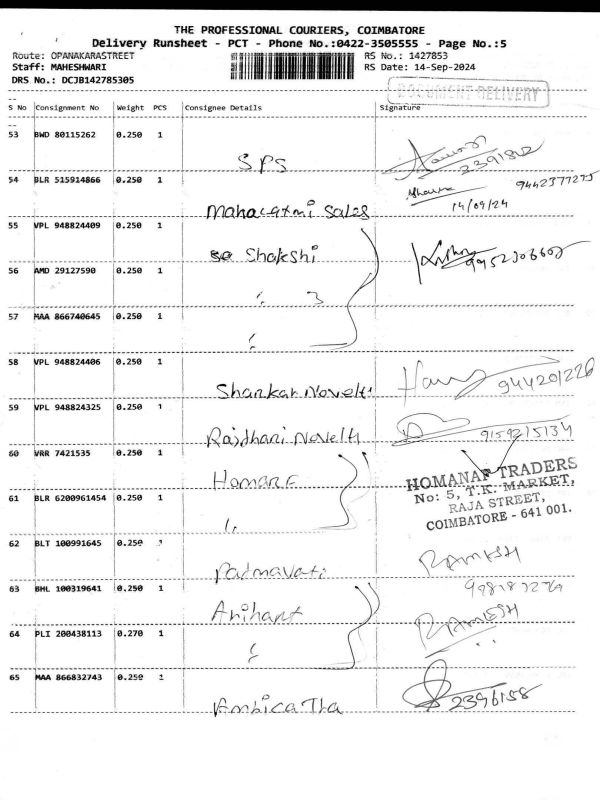 THE PROFESSIONAL COURIERS, COIMBATORE
Delivery Runsheet - PCT - Phone No.:0422-3505555 - Page No.:5
Route: OPANAKARASTREET
RS No.: 1427853
Staff: MAHESHWARI
RS Date: 14-Sep-2024
DRS No.: DCJB142785305
DOCUMENT DELIVERY
S No Consignment No Weight PCS Consignee Details Signature
53 BWD 80115262 0.250 1
SPS
54 BLR 515914866 0.250 1
9442377275
Mahalaxmi Sales
14/09/24
55 VPL 948824409 0.250 1
Shakshi
56 AMD 29127590 0.250 1
57 MAA 866740645 0.250 1
58 VPL 948824406 0.250 1
Shankar Novelti
944201226
59 VPL 948824325 0.250 1
Rajdhani Novelti
9159215134
60 VRR 7421535 0.250 1
HOMANAF TRADERS
No: 5, T.K. MARKET,
RAJA STREET,
COIMBATORE - 641 001.
61 BLR 6200961454 0.250 1
62 BLT 100991645 0.250 1
Padmavati
RAMESH
63 BHL 100319641 0.250 1
Arihant
64 PLI 200438113 0.270 1
RAMESH
65 MAA 866832743 0.250 1
Ambica Tha
2396158